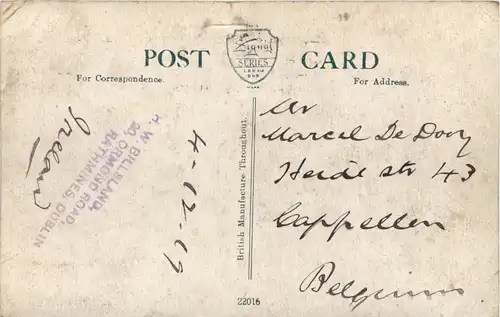 POST CARD
Signal
SERIES
For Correspondence.
For Address.
H. W. BILLSLAND,
20 ORMOND ROAD,
RATHMINES, DUBLIN
Ireland
4-12-19
British Manufacture Throughout.
Mr
Marcel De Dooy
Heide str 43
Cappellen
Belgium
22016